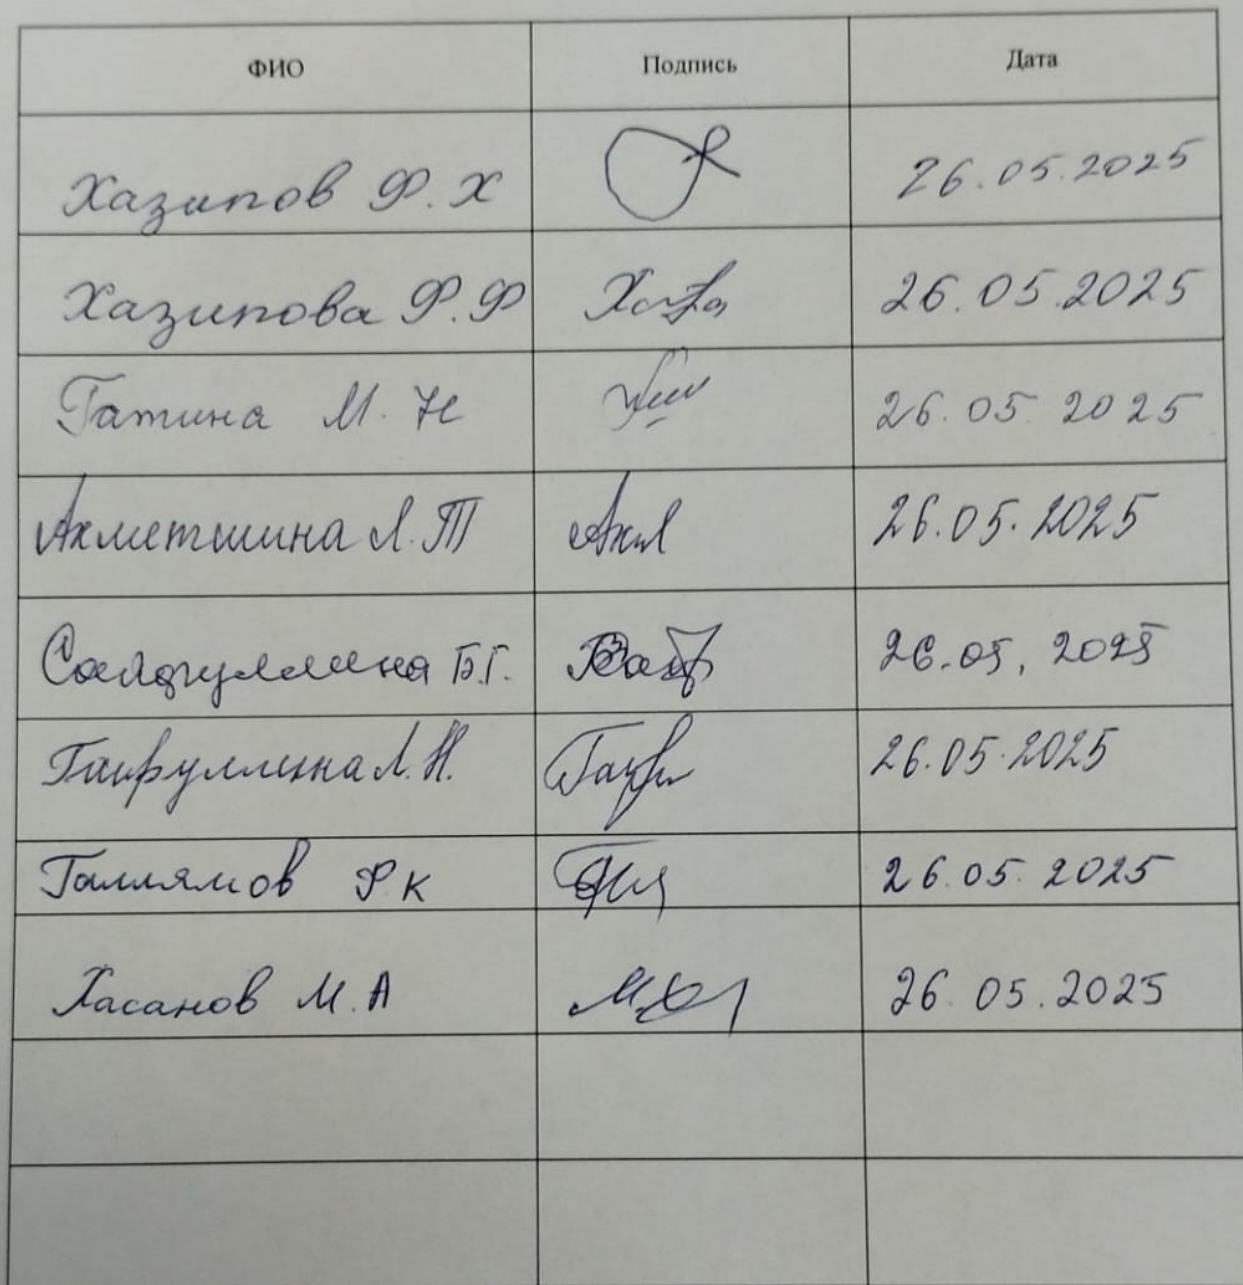 ФИО Подпись Дата
Хазипов Ф. Х 26.05.2025
Хазипова Ф.Ф 26.05.2025
Гатина М. Н 26.05.2025
Ахметшина Л.Т 26.05.2025
Сайфуллина Б.Г. 26.05.2025
Гаифуллина Л.Н. 26.05.2025
Галлямов Р К 26.05.2025
Хасанов М.А 26.05.2025